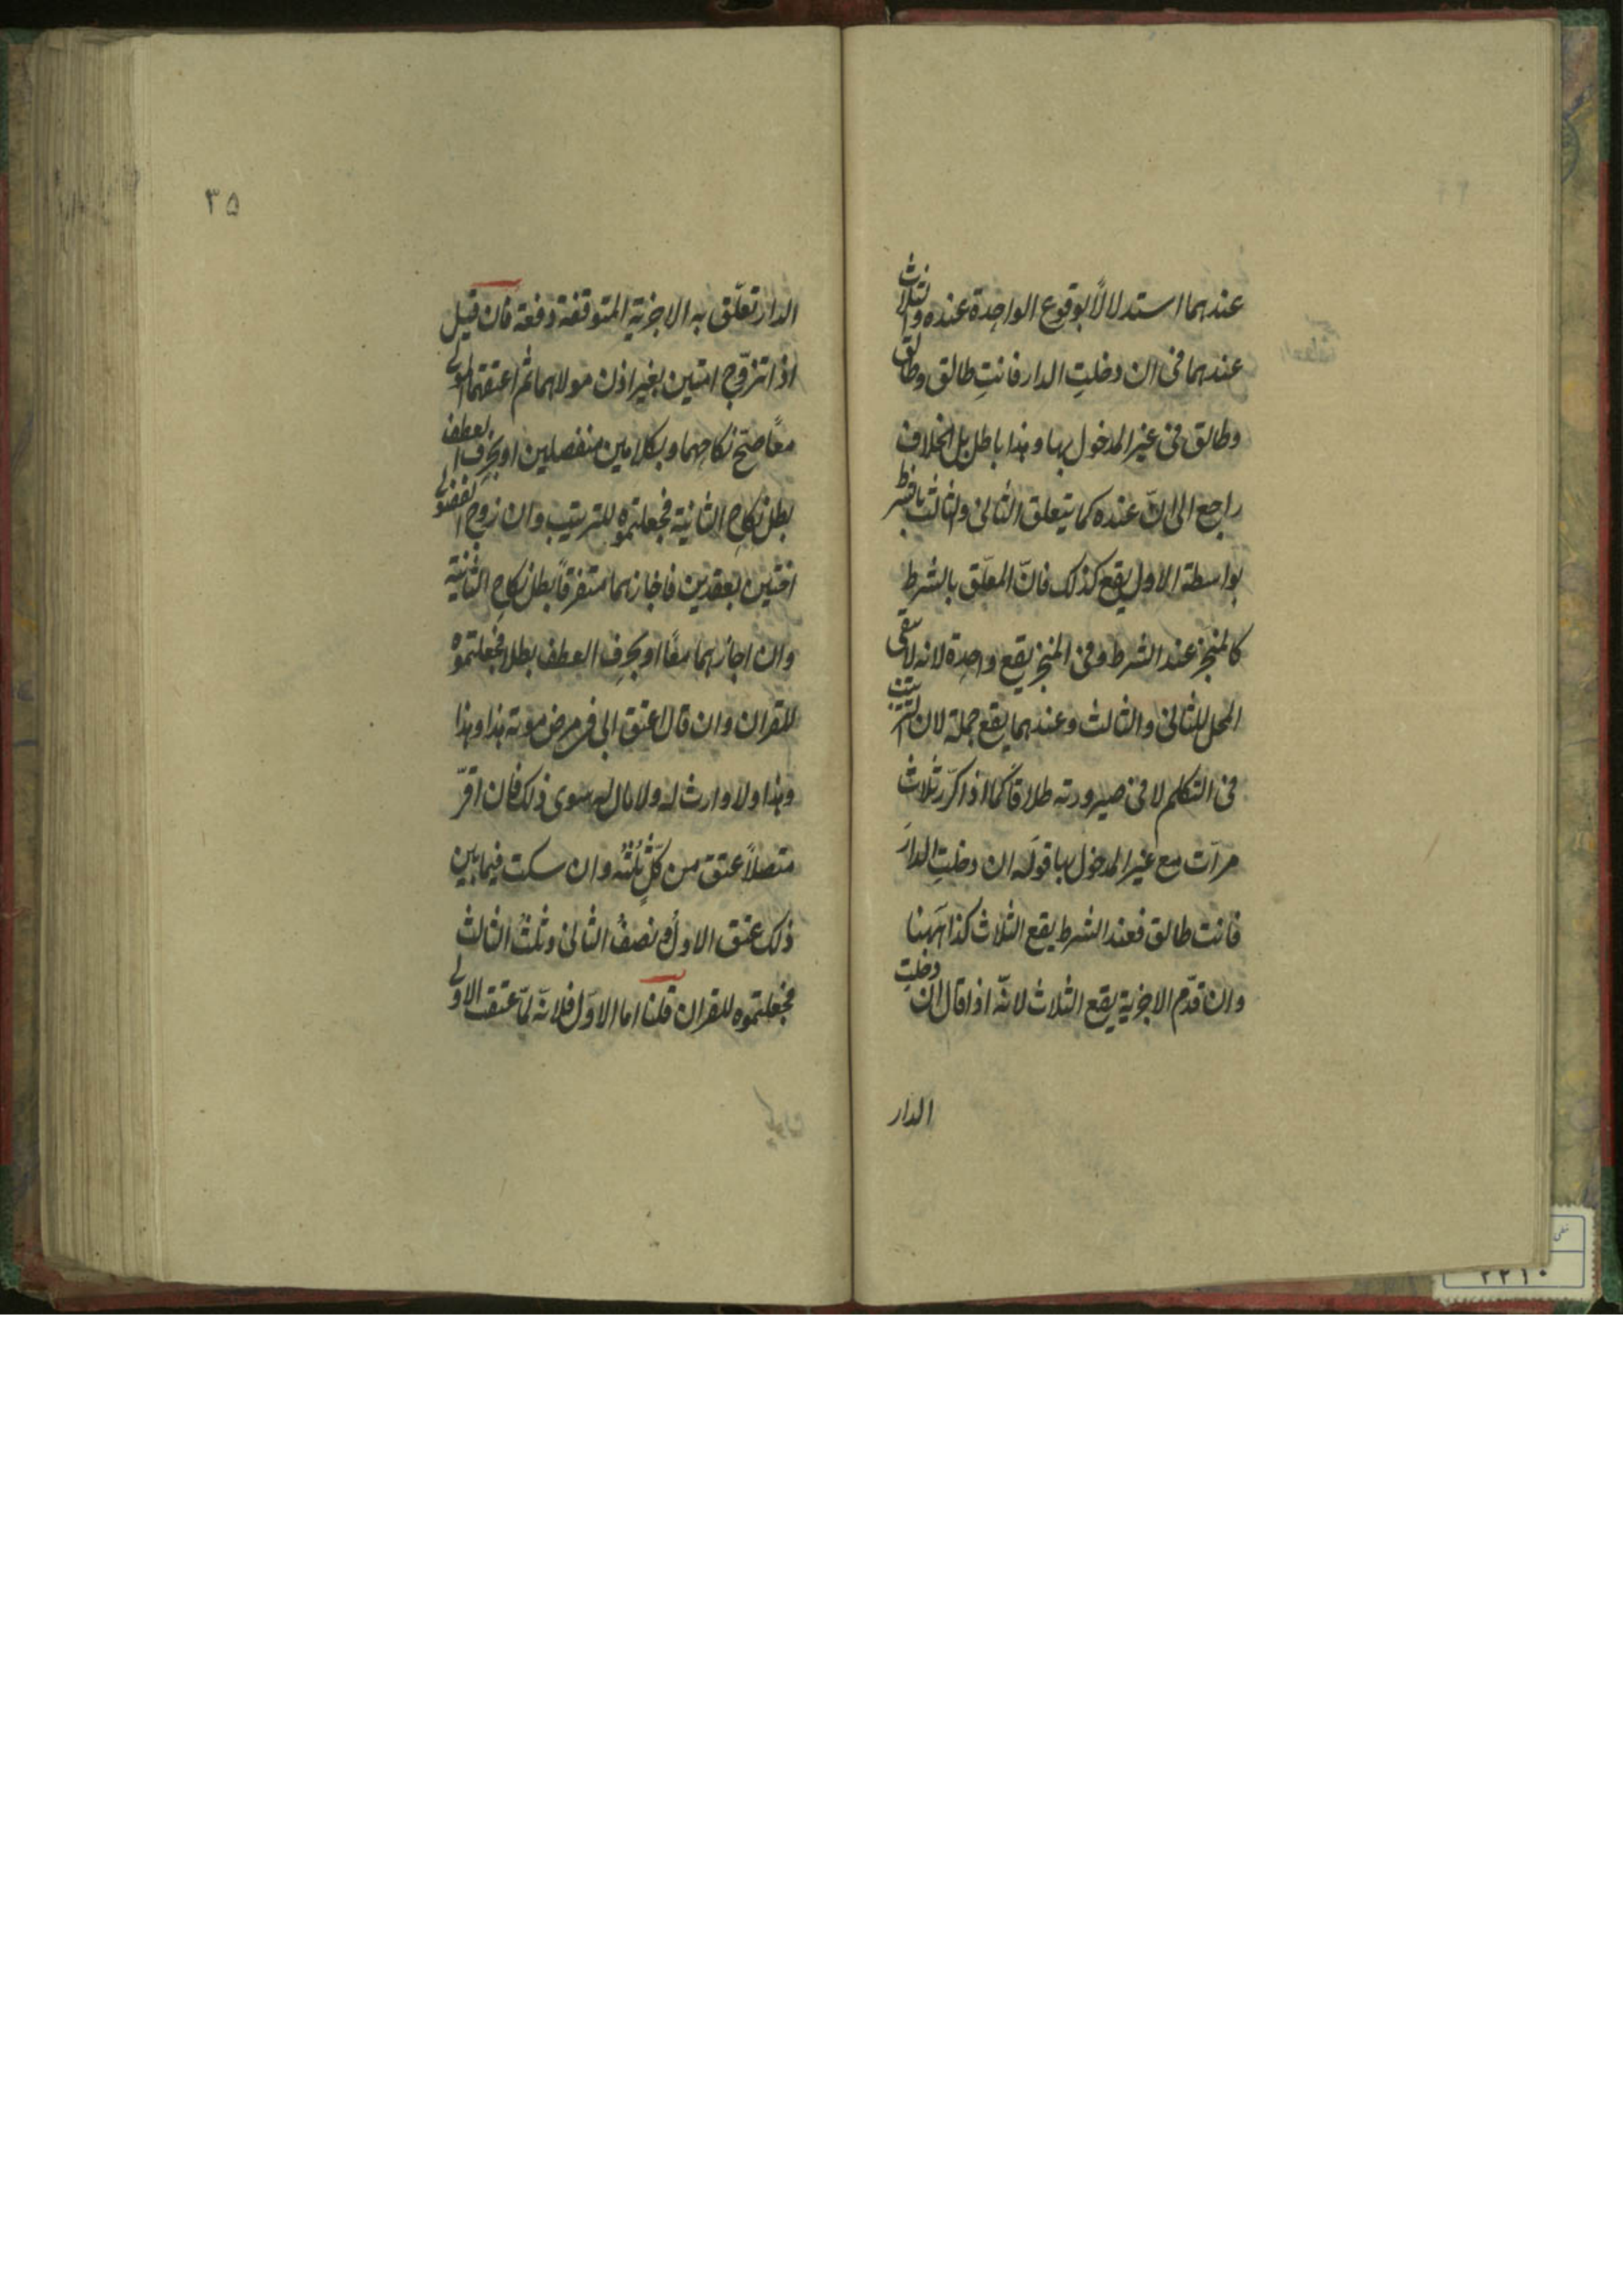 عندهما استدلالاً بوقوع الواحدة عنده والثلاث
عندهما فى ان دخلتِ الدار فانتِ طالق وطالق
وطالق فى غير المدخول بها وهذا باطل بل الخلاف
راجع الى انّ عنده كما يتعلق الثانى والثالث بالشرط
بواسطة الاول يقع كذلك فانّ المعلّق بالشرط
كالمنجز عند الشرط وفى المنجز يقع واحدة لانه لا يبقى
المحل للثانى والثالث وعندهما يقع جملة لان الترتيب
فى التكلم لا فى صيرورته طلاقا كما اذا كرّر ثلاث
مرات مع غير المدخول بها قوله ان دخلتِ الدارَ
فانت طالق فعند الشرط يقع الثلاث كذا ههنا
وان قدّم الاجزية يقع الثلاث لانّه اذا قال ان دخلتِ
الدار
٣٥
الدار تعلّق به الاجزية المتوقفة دفعة فان قيل
اذا تزوّج امتين بغير اذن مولاهما ثم اعتقهما المولى
معاً صحّ نكاحهما وبكلامين منفصلين او بحرف العطف
بطل نكاح الثانية فجعلتموه للترتيب وان زوج الفضولى
اختين بعقدين فاجازهما متفرقاً بطل نكاح الثانية
وان اجازهما معًا او بحرف العطف بطلا فجعلتموه
للقران وان قال اعتق ابى فى مرض موته هذا وهذا
وهذا ولا وارث له ولا مال له سوى ذلك فان اقرّ
متصلاً عتق من كلٍ ثُلثُه وان سكت فيما بين
ذلك عتق الاول ونصفُ الثانى وثلثُ الثالث
فجعلتموه للقران قلنا اما الاوّل فلانّه لمّا عتقت الاولى
٢٢١٠